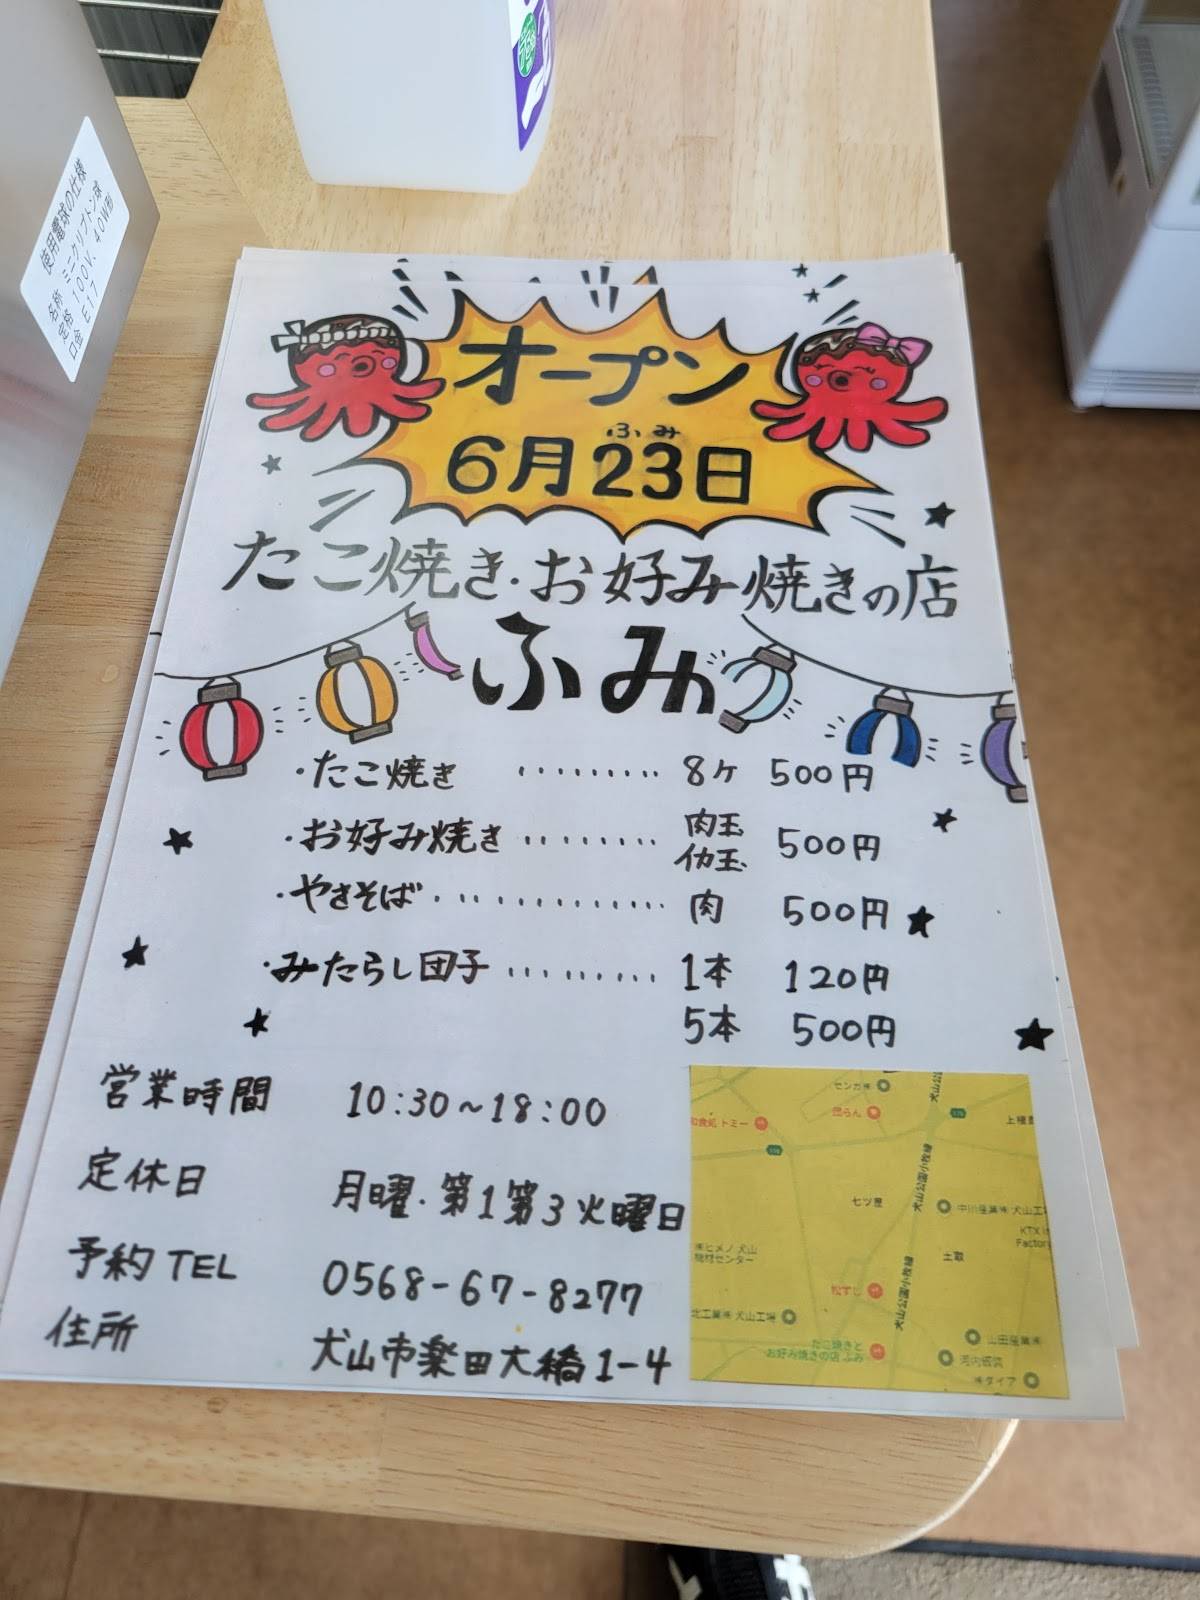 使用電球の仕様
名称 ミニクリプトン球
定格 100V. 40W形
口金 E17
オープン
ふみ
6月23日
たこ焼き・お好み焼きの店
ふみ
・たこ焼き ......... 8ヶ 500円
・お好み焼き ........ 肉玉 イカ玉 500円
・やきそば ............. 肉 500円
・みたらし団子 ......... 1本 120円
5本 500円
営業時間 10:30~18:00
定休日 月曜・第1第3火曜日
予約TEL 0568-67-8277
住所 犬山市楽田大橋1-4
センガ㈱
団らん
和食処 トミー
犬山公園小牧線
七ツ屋
中川産業㈱ 犬山工場
KTX
Factory
㈱ヒメノ 犬山
機材センター
土取
犬山公園小牧線
松ずし
北工業㈱ 犬山工場
山田産業㈱
たこ焼きと
お好み焼きの店 ふみ
河内板袋
㈱ダイア